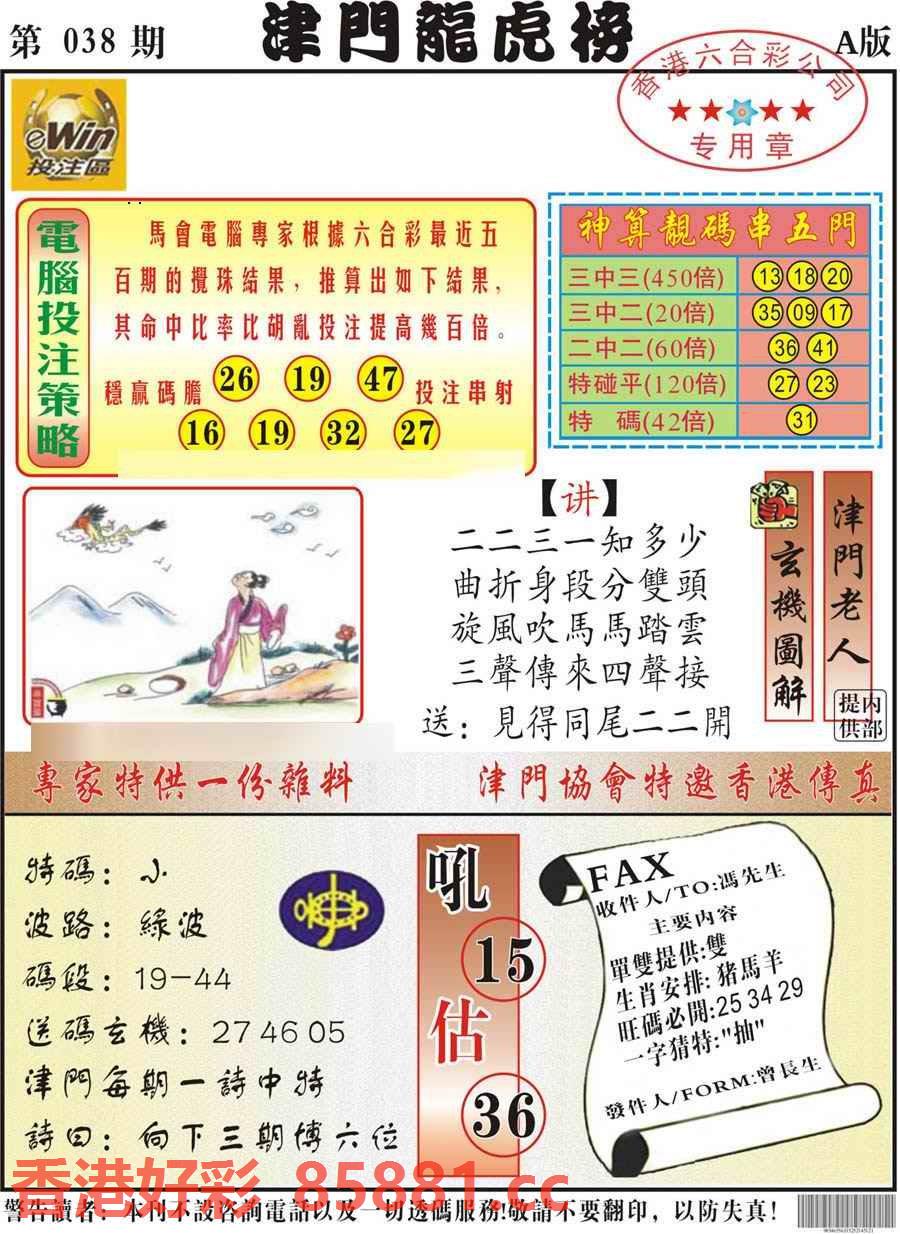 第 038 期
津門龍虎榜
A版
香港六合彩公司
专用章
eWin
投注區
電腦投注策略
馬會電腦專家根據六合彩最近五
百期的攪珠結果，推算出如下結果，
其命中比率比胡亂投注提高幾百倍。
穩贏碼膽 26 19 47 投注串射
16 19 32 27
神算靚碼串五門
三中三(450倍) 13 18 20
三中二(20倍) 35 09 17
二中二(60倍) 36 41
特碰平(120倍) 27 23
特 碼(42倍) 31
【讲】
二二三一知多少
曲折身段分雙頭
旋風吹馬馬踏雲
三聲傳來四聲接
送：見得同尾二二開
玄機圖解
津門老人
内部提供
專家特供一份雜料
津門協會特邀香港傳真
特碼：小
波路：綠波
碼段：19-44
送碼玄機：27 46 05
津門每期一詩中特
詩曰：向下三期博六位
吼
15
估
36
FAX
收件人/TO:馮先生
主要内容
單雙提供:雙
生肖安排:猪馬羊
旺碼必開:25 34 29
一字猜特:"抽"
發件人/FORM:曾長生
香港好彩 85881.cc
警告讀者：本刊不設咨詢電話以及一切透碼服務!敬請不要翻印，以防失真!